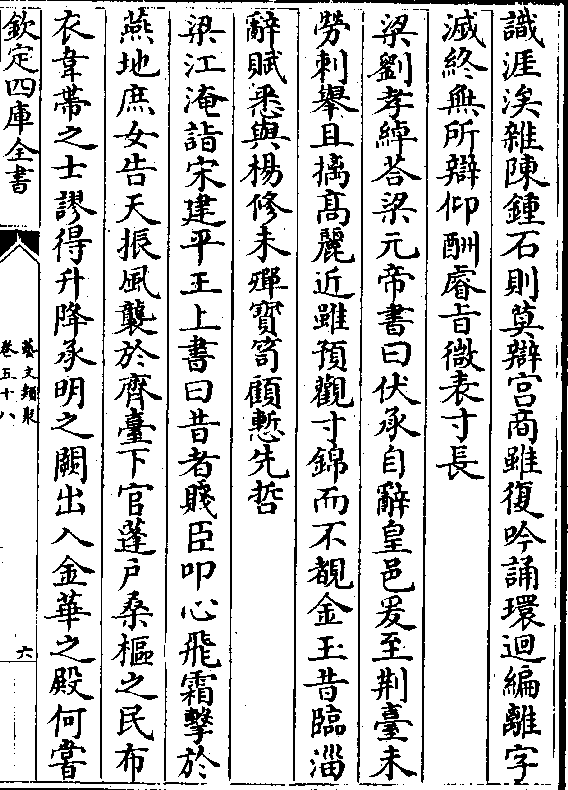 識涯涘雜陳鍾石則莫辯宮商雖復吟誦環迴編離字
滅終無所辯仰酬睿旨微表寸長
梁劉孝綽答梁元帝書曰伏承自辭皇邑爰至荆臺未
勞刺舉且摛高麗近雖預觀寸錦而不覩金玉昔臨淄
辭賦悉與楊修未殫寳笥顧慙先哲
梁江淹詣宋建平王上書曰昔者賤臣叩心飛霜擊於
燕地庶女告天振風襲於齊臺下官蓬戸桑樞之民布
衣韋帶之士謬得升降承明之闕出入金華之殿何嘗
欽定四庫全書
藝文類聚
卷五十八
六